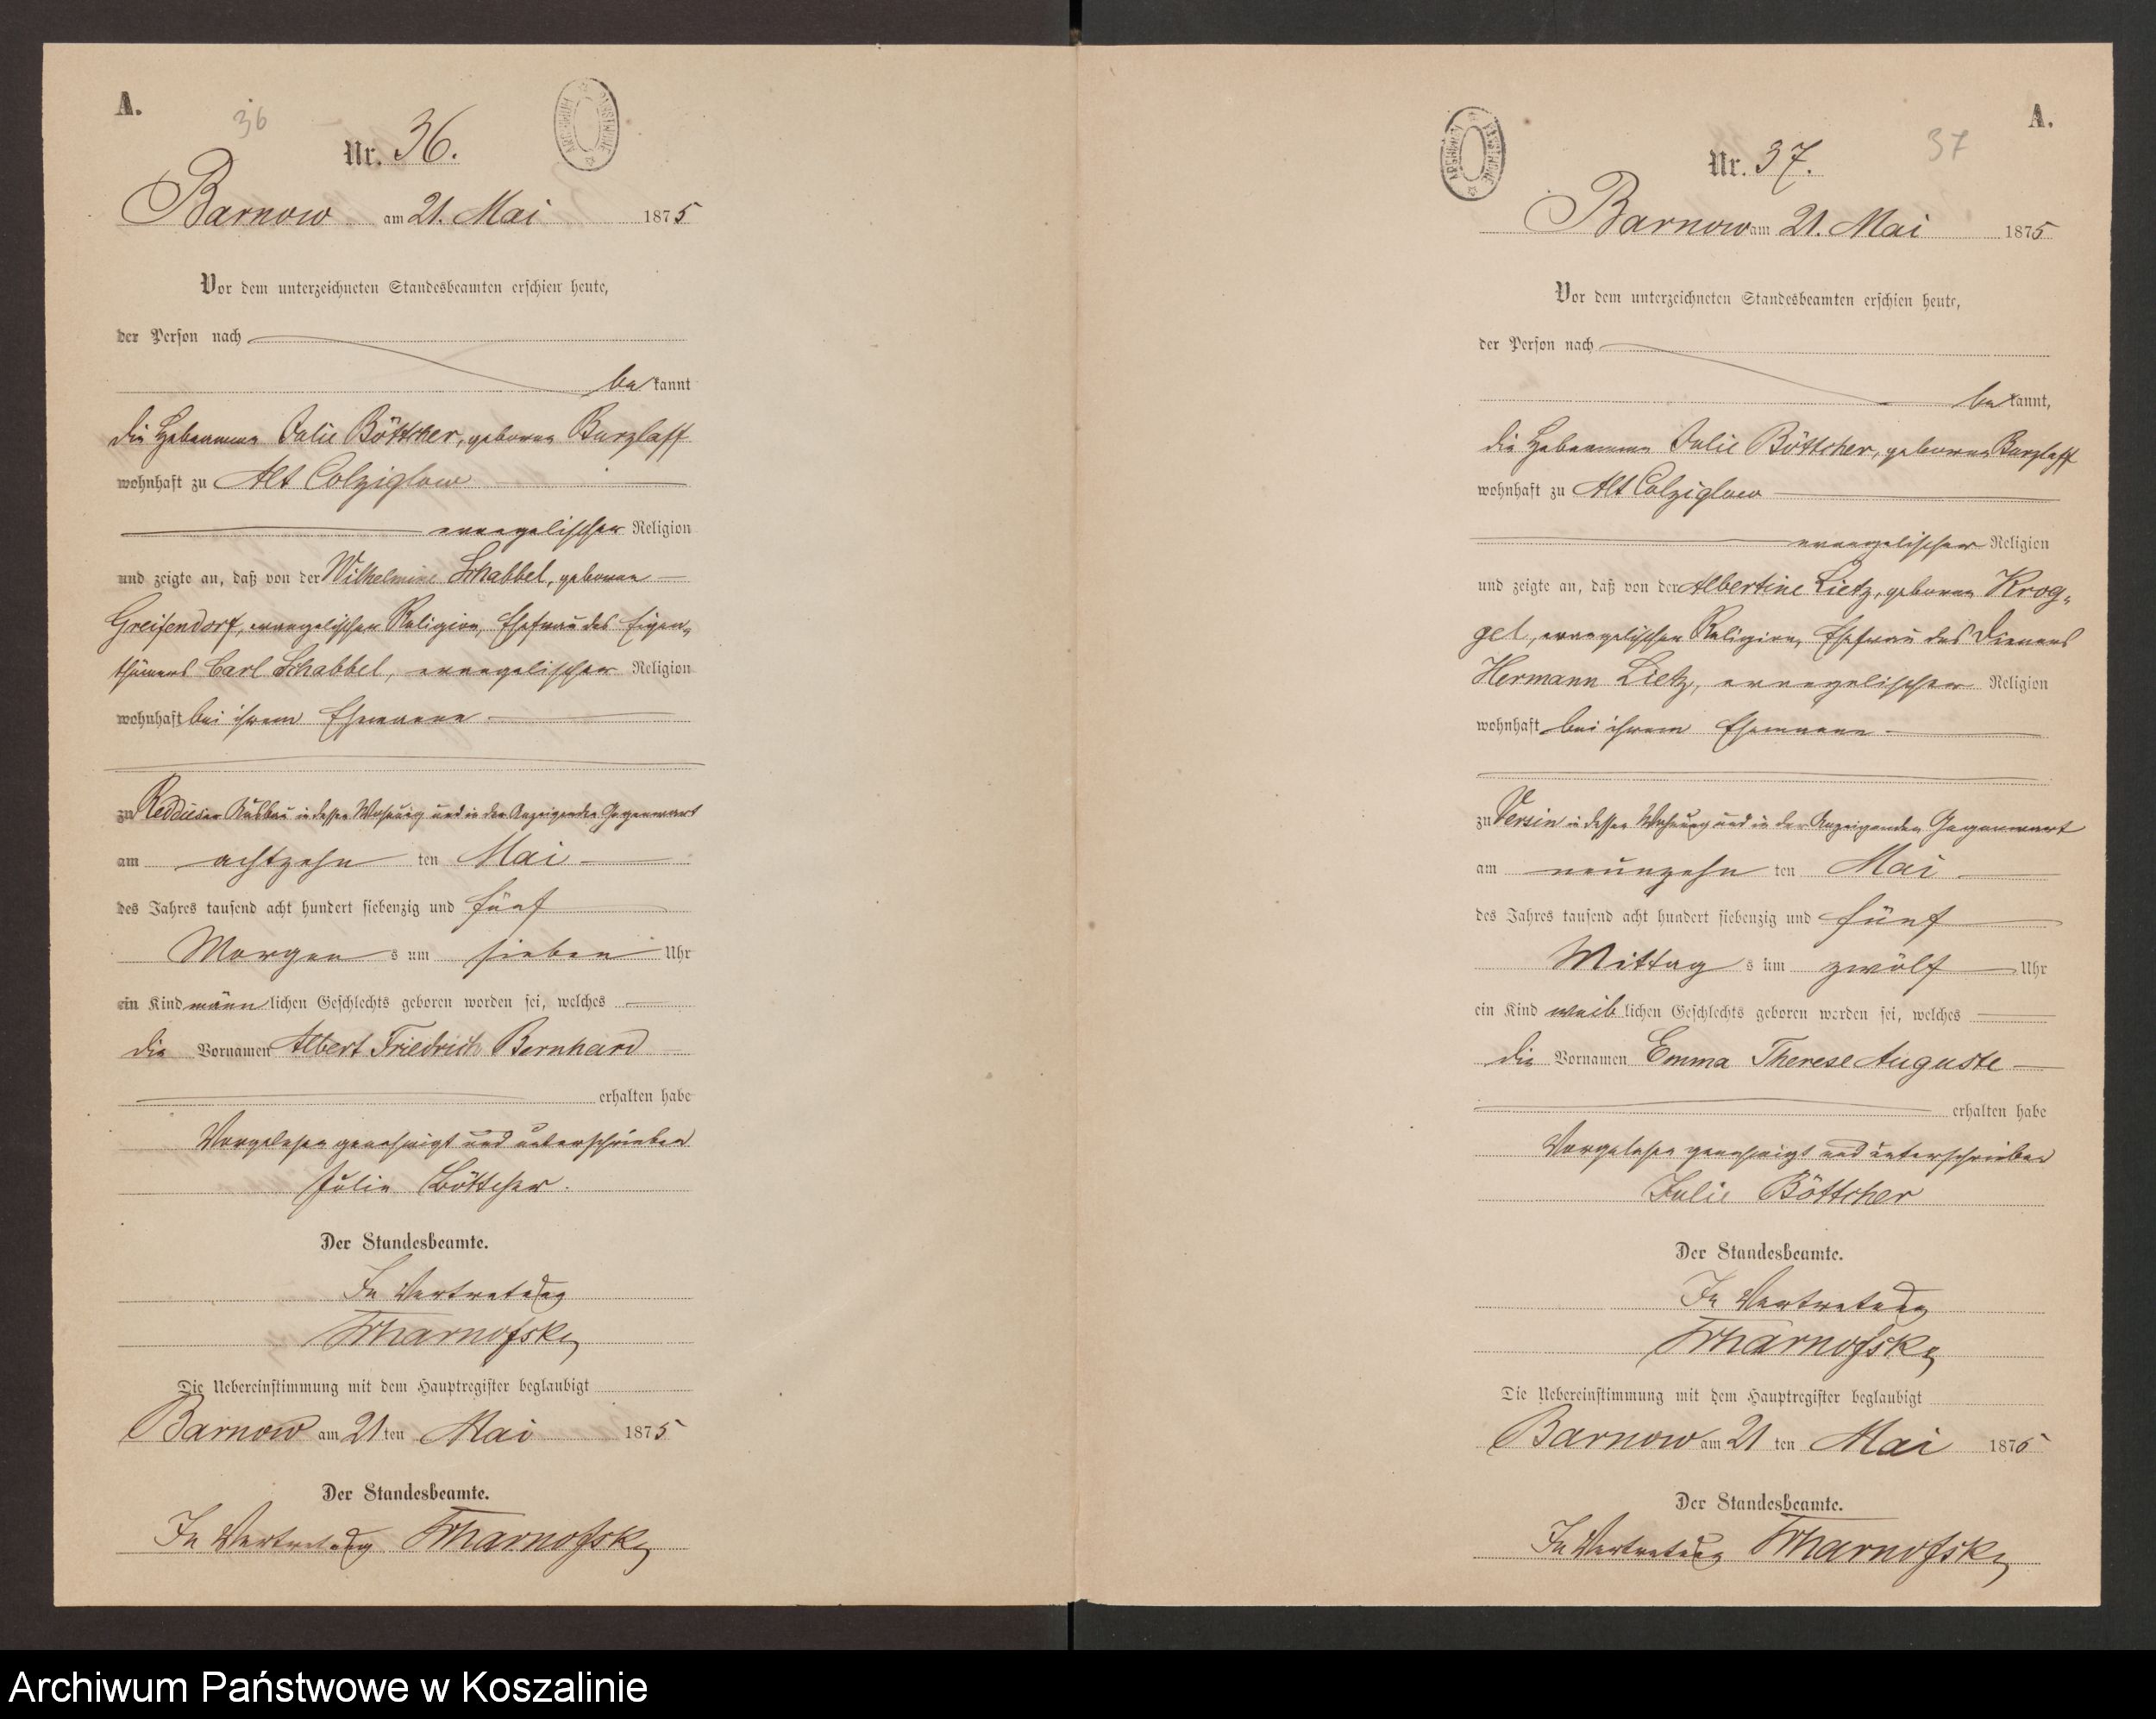 A.
36
Nr. 36.
ARCHIWUM PAŃSTWOWE
Barnow am 21. Mai 1875
Vor dem unterzeichneten Standesbeamten erschien heute,
der Person nach
be kannt
die Hebeamme Julie Böttcher, geborne Barzlaff
wohnhaft zu Alt Colziglow
evangelischer Religion
und zeigte an, daß von der Wilhelmine Schabbel, geborne
Greifendorf, evangelischer Religion, Ehefrau des Eigen-
thümers Carl Schabbel, evangelischer Religion
wohnhaft bei ihrem Ehemanne
zu Reddieser in dessen Wohnung und in der Anzeigenden Gegenwart
am achtzehn ten Mai
des Jahres tausend acht hundert siebenzig und fünf
Morgen s um sieben Uhr
ein Kind männ lichen Geschlechts geboren worden sei, welches
die Vornamen Albert Friedrich Bernhard
erhalten habe
Vorgelesen genehmigt und unterschrieben
Julie Böttcher.
Der Standesbeamte.
In Vertretung
Die Uebereinstimmung mit dem Hauptregister beglaubigt
Barnow am 21 ten Mai 1875
Der Standesbeamte.
In Vertretung
A.
37
Nr. 37.
ARCHIWUM PAŃSTWOWE
Barnow am 21. Mai 1875
Vor dem unterzeichneten Standesbeamten erschien heute,
der Person nach
be kannt,
die Hebeamme Julie Böttcher, geborne Barzlaff
wohnhaft zu Alt Colziglow
evangelischer Religion
und zeigte an, daß von der Albertine Lietz, geborne Krog-
gel, evangelischer Religion, Ehefrau des Dieners
Hermann Lietz, evangelischer Religion
wohnhaft bei ihrem Ehemanne
zu Versin in dessen Wohnung und in der Anzeigenden Gegenwart
am neunzehn ten Mai
des Jahres tausend acht hundert siebenzig und fünf
Mittag s um zwölf Uhr
ein Kind weib lichen Geschlechts geboren worden sei, welches
die Vornamen Emma Therese Auguste
erhalten habe
Vorgelesen genehmigt und unterschrieben
Julie Böttcher
Der Standesbeamte.
In Vertretung
Die Uebereinstimmung mit dem Hauptregister beglaubigt
Barnow am 21 ten Mai 1875
Der Standesbeamte.
In Vertretung
Archiwum Państwowe w Koszalinie